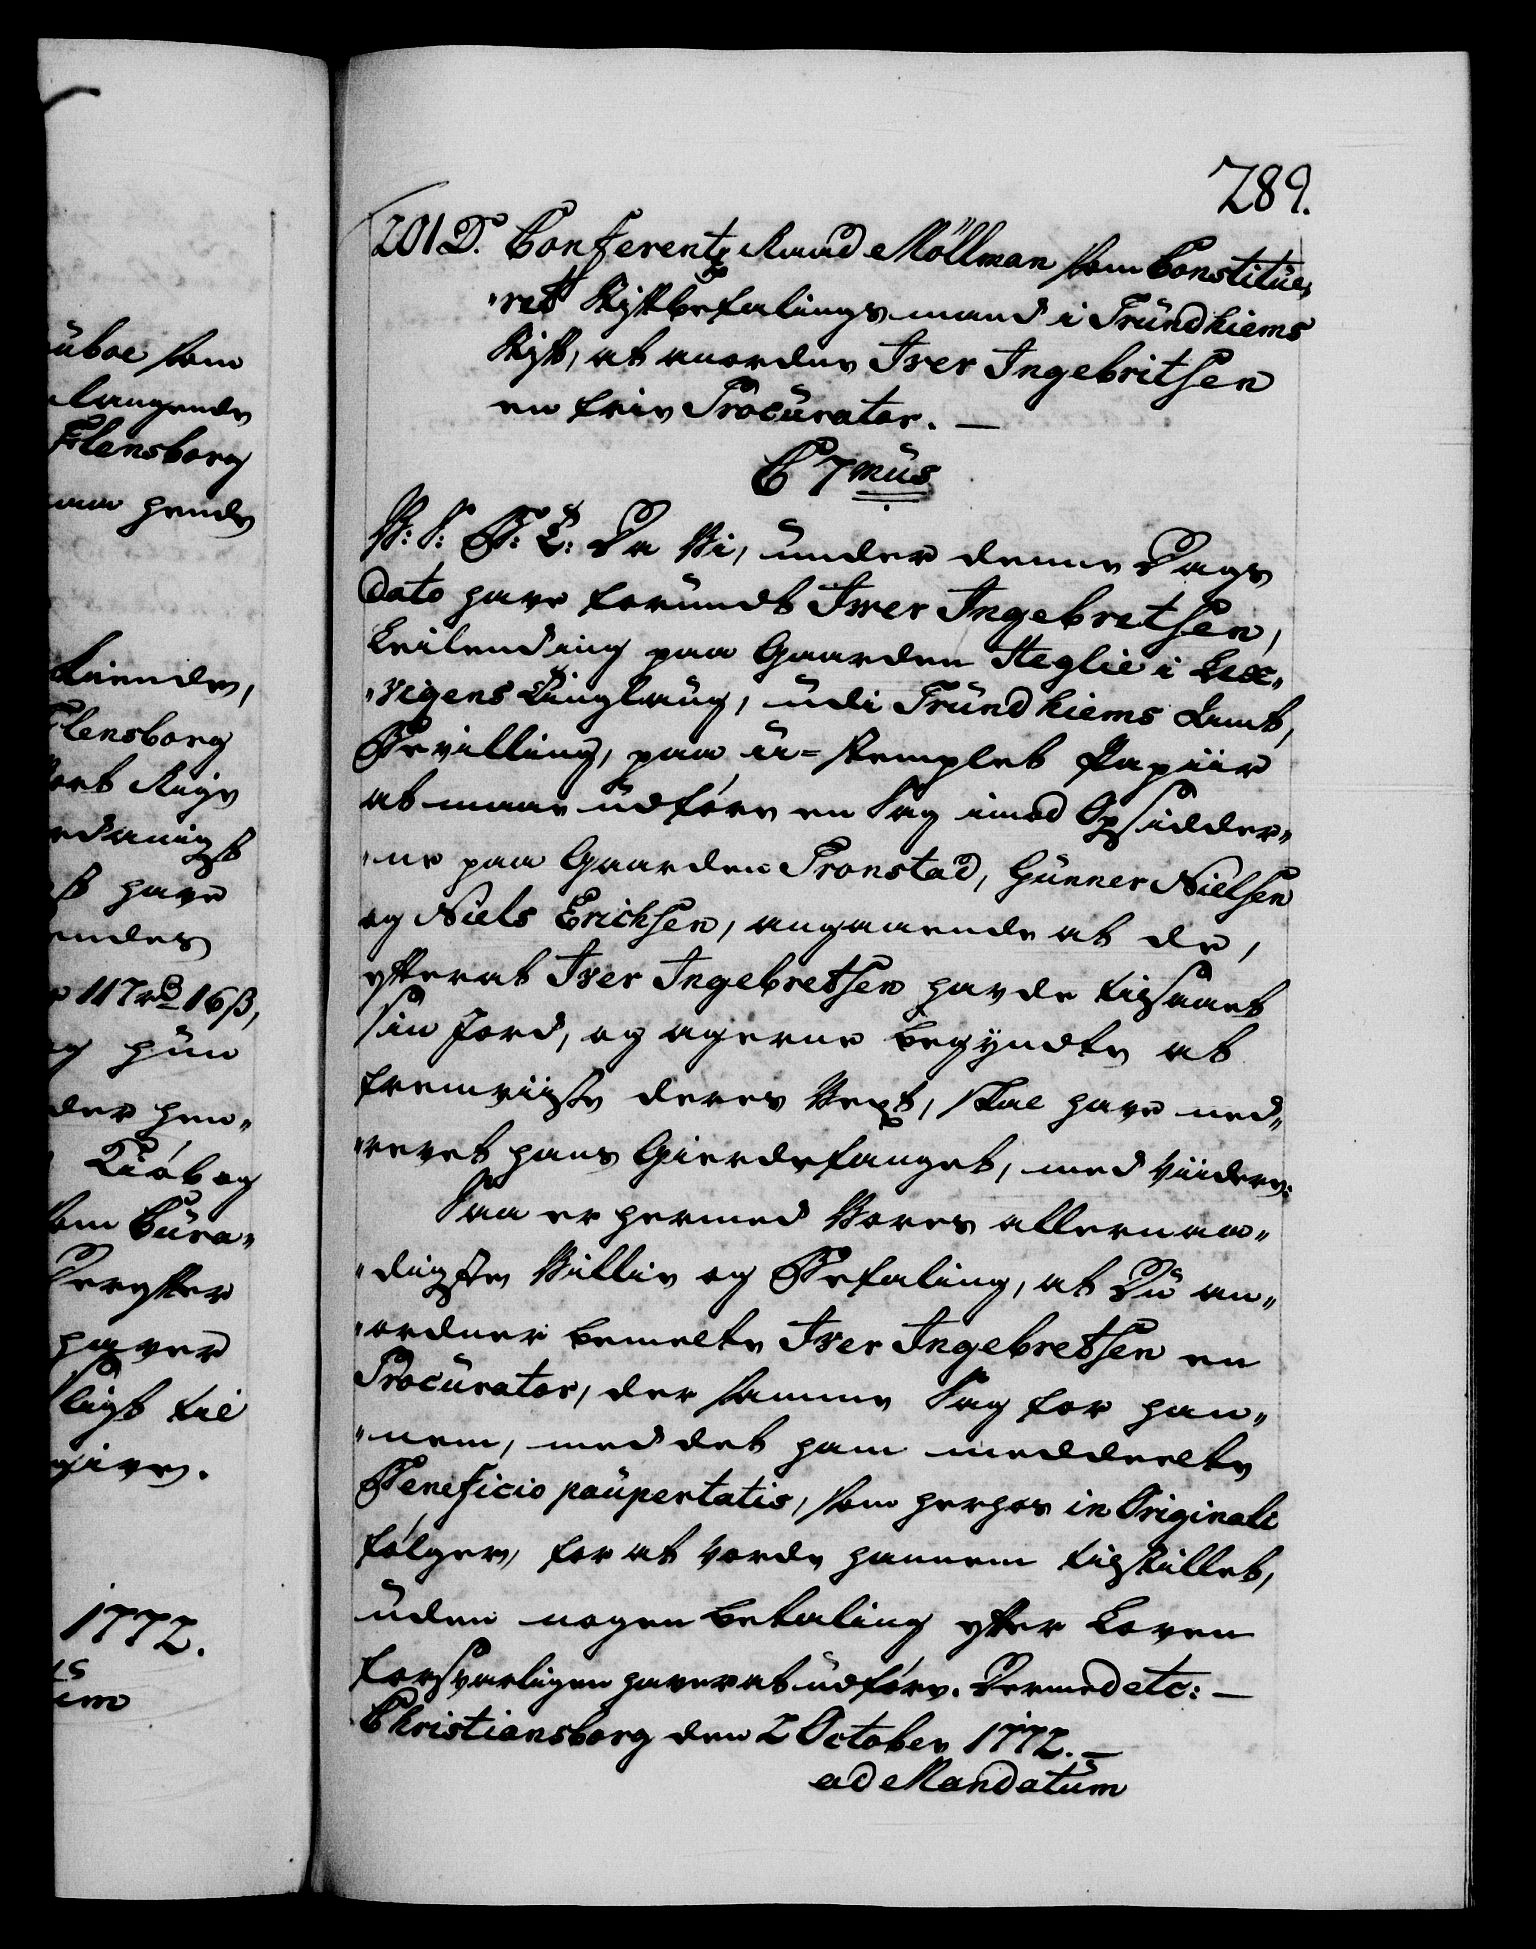 289.
201 D. Conferentz Raad Möllman som Constitue„
„ret Stiftbefalingsmand i Trundhiems
Stift, at anordne Iver Ingebritsen
en friv Procurator. —
C 7mus
V: S: B: T: Da Vi, under denne Dags
dato have forundt Iver Ingebretsen,
Leilending paa Gaarden Steglie i Lex„
„vigens Tinglaug, udi Trundhiems Amt,
Bevilling, paa u=stemplet Papiir
at maae udføre en Sag imod Opsidder„
„ne paa Gaarden Tronstad, Gunner Nielsen
og Niels Erichsen, angaaende at de,
efterat Iver Ingebretsen havde tilsaaet
sin Jord, og agerne begyndte at
fremviise deres Vext, skal have ned„
„revet hans Gierdefanget, med viidere.
Saa er hermed Vores allernaa„
„digste Villie og Befaling, at Du an„
„ordner bemelte Iver Ingebretsen en
Procurator, der samme Sag for han„
„nem, med det ham meddeelte
Beneficio paupertatis, som herhos in Originali
følger, for at vorde hannem tilstillet,
uden nogen betaling efter Loven
forsvarligen haver at udføre. Dermed etc: —
Christiansborg den 2 October 1772. —
ad Mandatum
uboe som
langende
Flensborg
hende
Flensborg
vort Rige
have
117 rd 16 ß,
og hun
der hen„
Kiøb og
som Cura„
Derefter
haver
til
give.
1772.